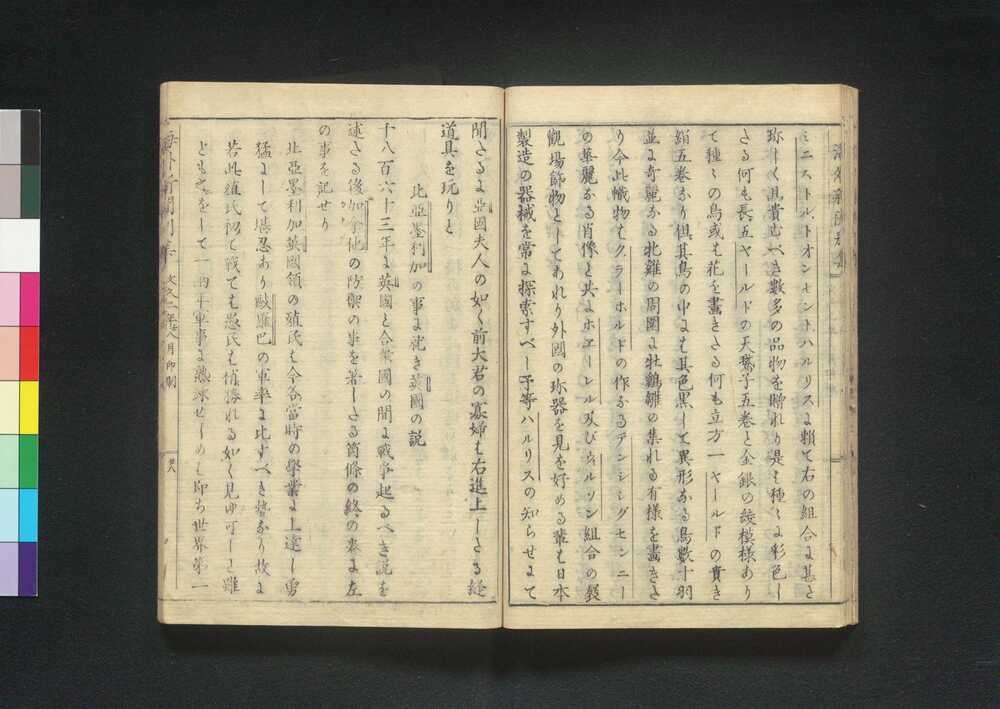 ミニストルトオンセンホハルリスよ頼て右の組合よ甚さ
珎しく且貴むべき数多の品物を贈れり是ハ種々よ彩色し
さる何も長五ヤールドの天鵞子五巻と金銀の綾模様あり
て種々の鳥或も花を畫きさる何も立方一ヤールドの貴き
絹五巻なり但其鳥の中よも其色黒して異形なる鳥數十羽
並よ奇麗なる牝雞の周圍よ牡鷄雛の集れる有様を畫きさ
り今此幟物もグラーホルドの作なるアンシングセンニー
の華麗なる肖像と共よホエーレル及びウィルソン組合の製
觀場餝物としてあれり外國の珎器を見を好める輩も日本
製造の器械を常よ探索すべし予等ハルリスの知らせよて
聞さるよ亞國夫人の如く前大君の寡婦も右進上しさる縫
道具を玩りと
比亞墨利加の事よ就き英國の説
千八百六十三年よ英國と合衆國の間よ戦争起るべき説を
述さる後加拿他の防禦の事を著しさる箇條の終の表よ左
の事を記せり
北亞墨利加英國領の殖民も今各當時の學業よ上達し勇
猛よして堪忍あり歐羅巴の軍卒よ比すべき勢なり故よ
若此殖民初て戦ても愚民も捕擒れる如く見ゆ可しと雖
とも之をして一兩年軍事よ熟练せしめも即ち世界第一
海外新聞別集 文久二年八月印刻
廿八